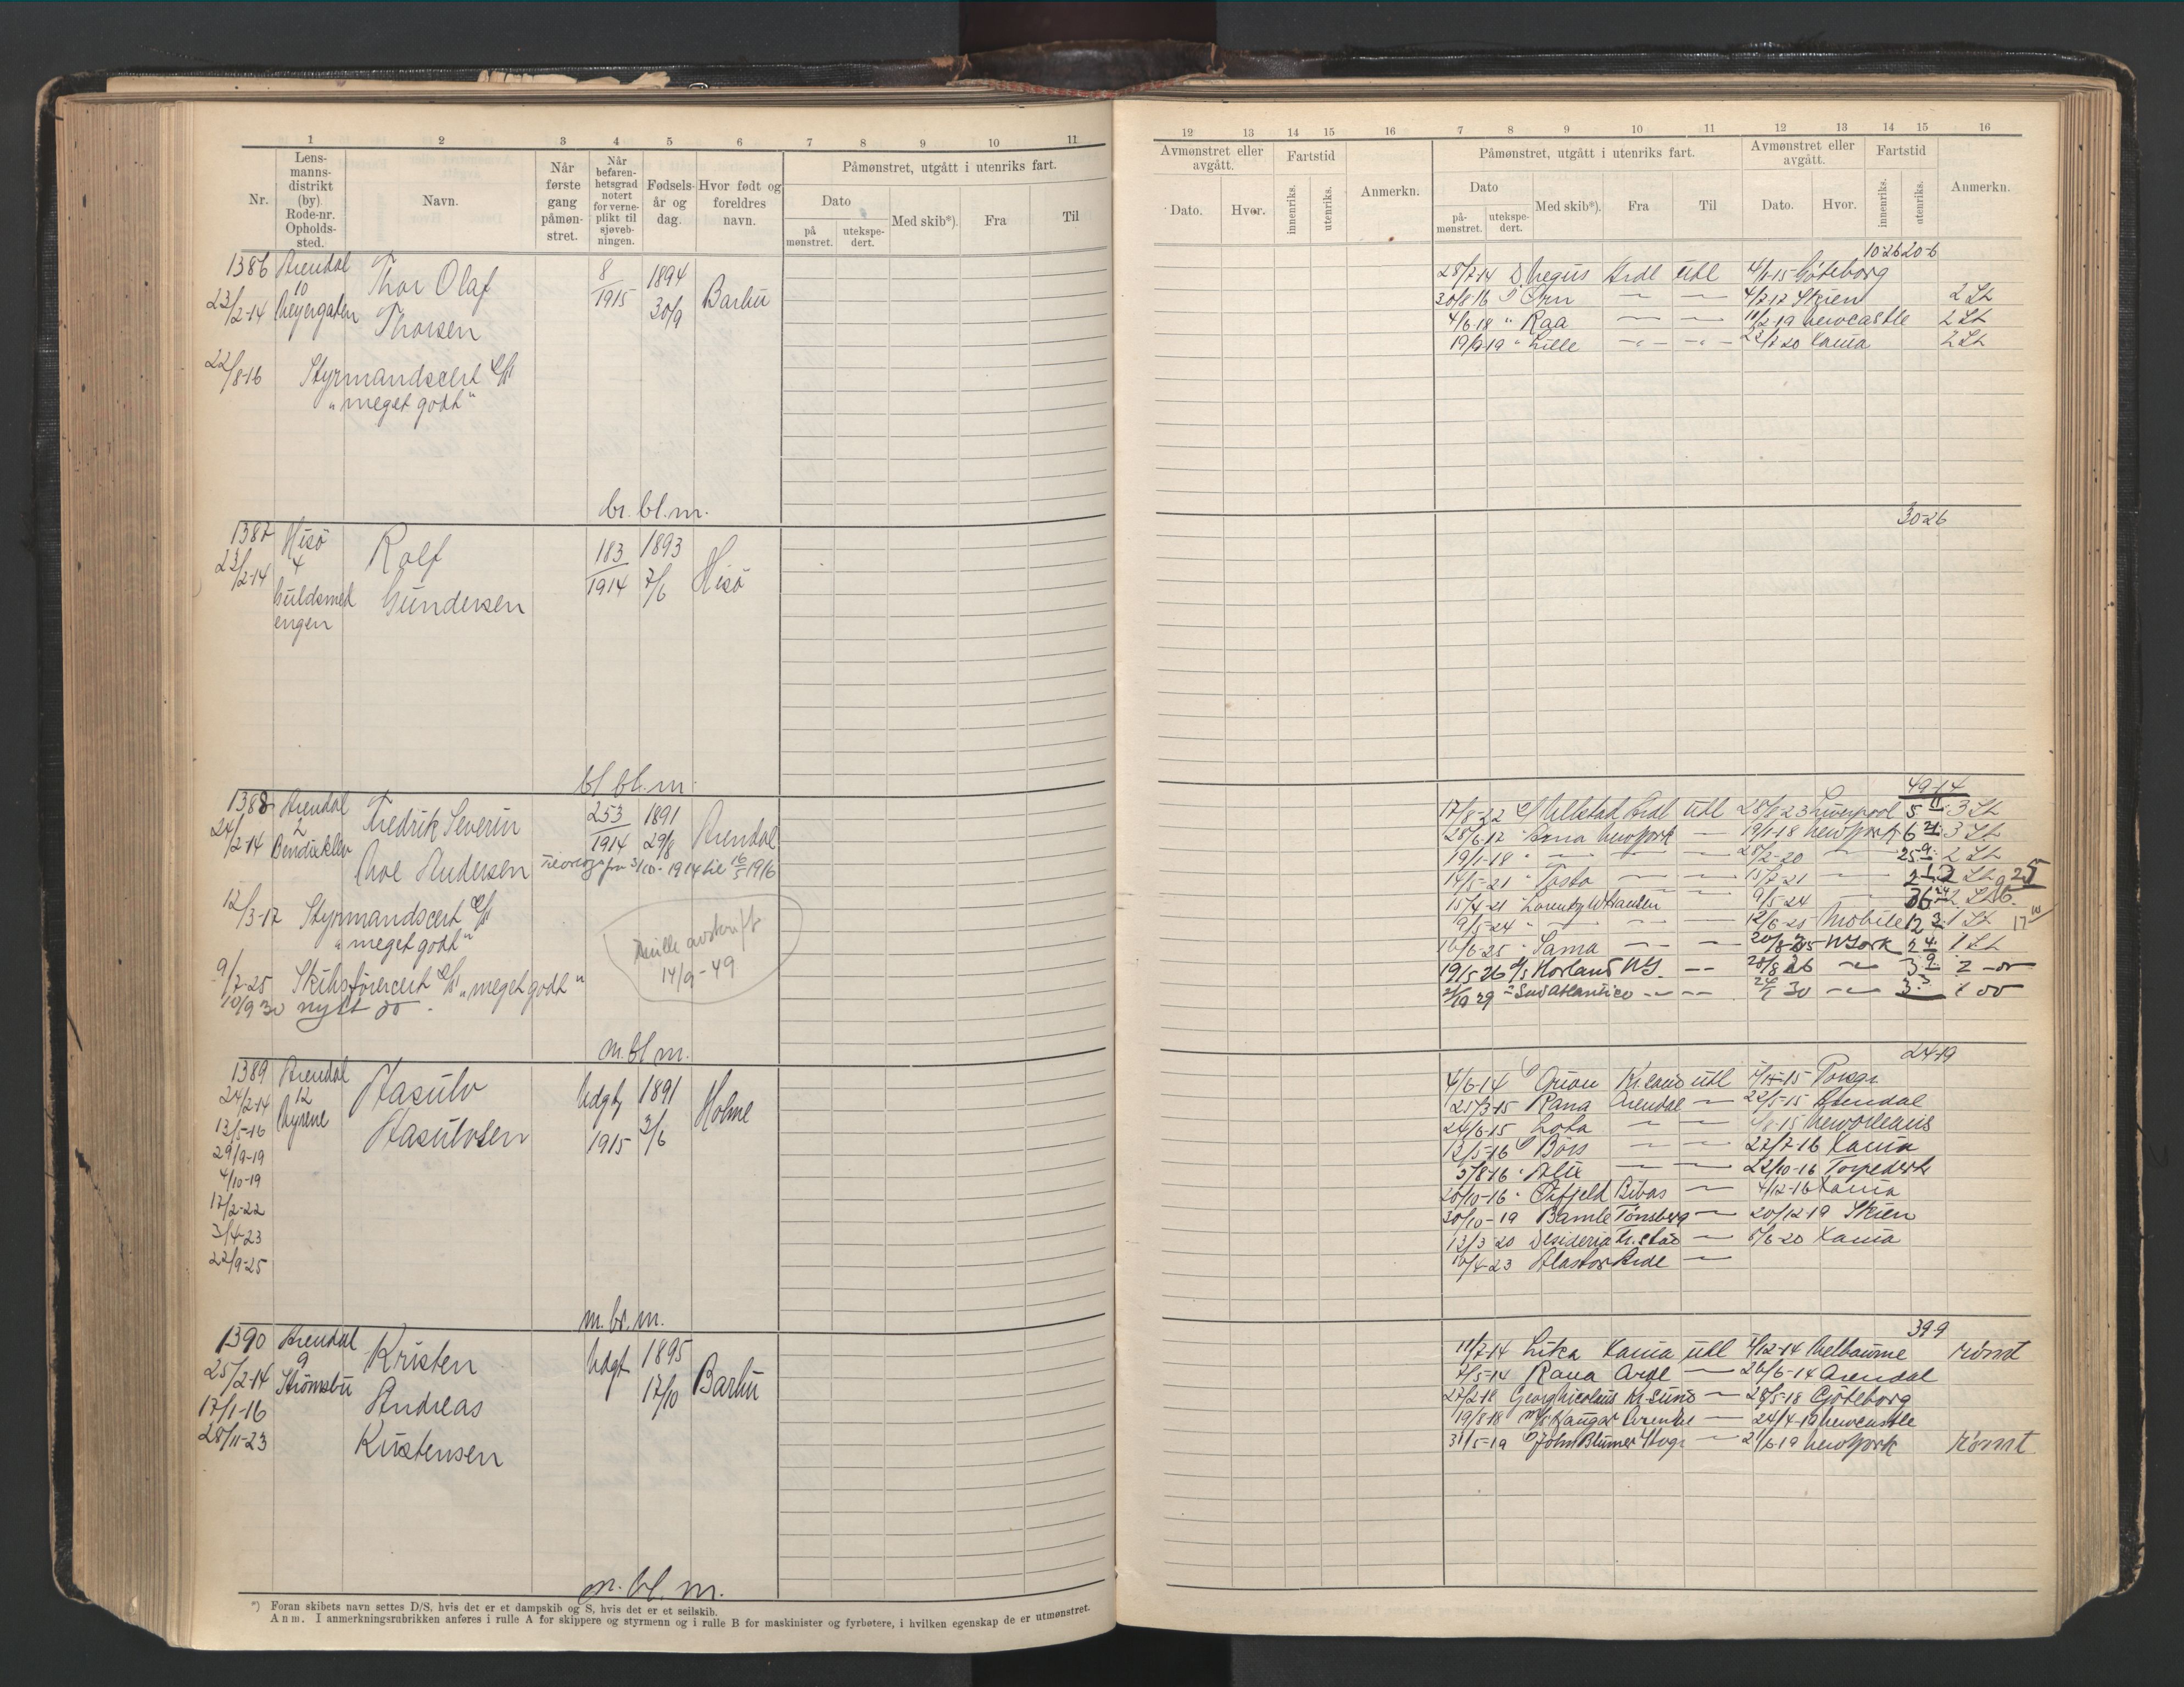 1 2 3 4 5 6 7 8 9 10 11
Nr. Lens-manns-distrikt (by). Rode-nr. Opholds-sted. Navn. Når første gang påmøn-stret. Når befaren-hetsgrad notert for verne-plikt til sjøveb-ningen. Fødsels-år og dag. Hvor født og foreldres navn. Påmønstret, utgått i utenriks fart.
Dato Med skib*). Fra Til
på mønstret. utekspe-dert.
1386 Arendal 8 1894
23/2-14 10 Thor Olaf 1915 30/9 Barbu
Meyergaten Thorsen
22/8-16 Styrmandscert
"meget godt"
br. bl. m.
1387 Hisö Rolf 183 1893
23/2-14 4 1914 7/6 Hisö
Guldsmed Gundersen
engen
bl bl. m.
1388 Arendal Fredrik Severin 253 1891
24/2-14 2 1914 29/8 Arendal
Bendiksklev Andersen
fra 3/10-1914 til 16/5 1916
12/3-17 Styrmandscert
"meget godt"
Rulle avskrift
14/9-49
9/7-25 Skibsførercert "meget godt"
10/9 30 nytt do
m. bl m.
1389 Arendal Stasulv Udgt 1891 Holme
24/2-14 12 1915 3/6
13/5-16 Myrene Stasulvsen
29/9-19
4/10-19
17/2-22
3/4-23
22/9-25
m. br. m.
1390 Arendal Kristen Udgt 1895
25/2-14 9 17/10 Barbu
17/1-16 Strömsbu Andreas
28/11-23 Kristensen
m. bl. m.
*) Foran skibets navn settes D/S, hvis det er et dampskib og S, hvis det er et seilskib.
Anm. I anmerkningsrubrikken anføres i rulle A for skippere og styrmenn og i rulle B for maskinister og fyrbøtere, i hvilken egenskap de er utmønstret.
12 13 14 15 16 7 8 9 10 11 12 13 14 15 16
Avmønstret eller avgått. Fartstid Anmerkn. Påmønstret, utgått i utenriks fart. Avmønstret eller avgått. Fartstid Anmerkn.
Dato. Hvor. innenriks. utenriks. Dato Med skib*). Fra Til Dato. Hvor. innenriks. utenriks.
på-mønstret. utekspe-dert.
10-26 20-6
28/7-14 D. Negus Ardl Utl 4/1-15 Göteborg
30/8 16 Örn — — 4/7-17 Skien 2 St
4/6-18 " Raa — — 11/2-19 Newcastle 2 St
19/9-19 " Lille — — 23/7 20 Xania 2 St
30-26
49-14
17/8-22 Ullstad Ardl Utl 28/8-23 Liverpool 5 3 St
28/6-17 New York — 19/1-18 New York 6 3 St
19/1-18 " — — — 28/2-20 — 25 2 St
14/5-21 " Tosto — — 15/7-21 — 2 St
15/7-21 Lorentz W Hansen — 9/5-24 36 2 St
9/5-24 " — — 12/6-25 Mobile 12 1 St
16/6-25 " Sama — — 20/8-25 N York 2 1 St
19/5 26 Horland NY. — 28/8 26 — 3 2 do
29 " Sud Atlantico — — 30 — 3 1 do
24-19
4/6-14 Orion Kr.sand utl 15 Porsgr
25/3-15 Rana Arendal — 22/5-15 Arendal
24/6-15 Lota — — 8-15 New Orleans
13/5-16 Börs — — 27/7-16 Xania
3/8-16 " Alix — — 22/10-16 Torpedert
20/10-16 " Örfjeld Bilbas — 4/12-16 Xania
30/10-19 Bamle Tönsberg — 20/12-19 Skien
13/3 20 Desideria — 8/6-20 Xania
16/4-23 Alastor Ardl —
39-9
11/7-14 Lika Xania utl 7/12-14 Melbourne römt
7/5-14 Rana Ardl — 26/6-14 Arendal
27/2-18 Georg Nicolaus Kr.sund — 28/5-18 Göteborg
19/8-18 m/s Kangar Arendal — 24/4-19 Newcastle
31/5-19 John Blumer — 21/6-19 New York Römt